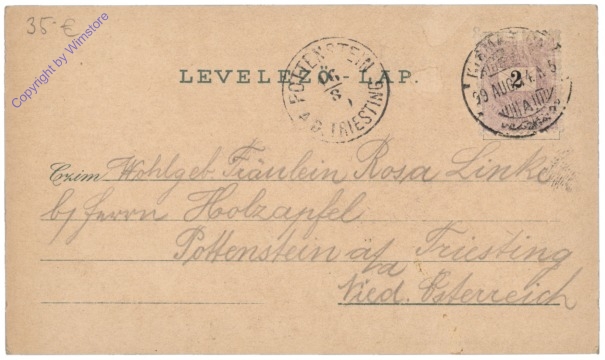 35-€
Copyright by Wimstore
LEVELEZŐ-LAP.
POTTENSTEIN
A.D. TRIESTING
2
99 AUG
Czim Wohlgeb Fräulein Rosa Linke
b/ Herrn Holzapfel
Pottenstein a/d Triesting
Nied. Österreich